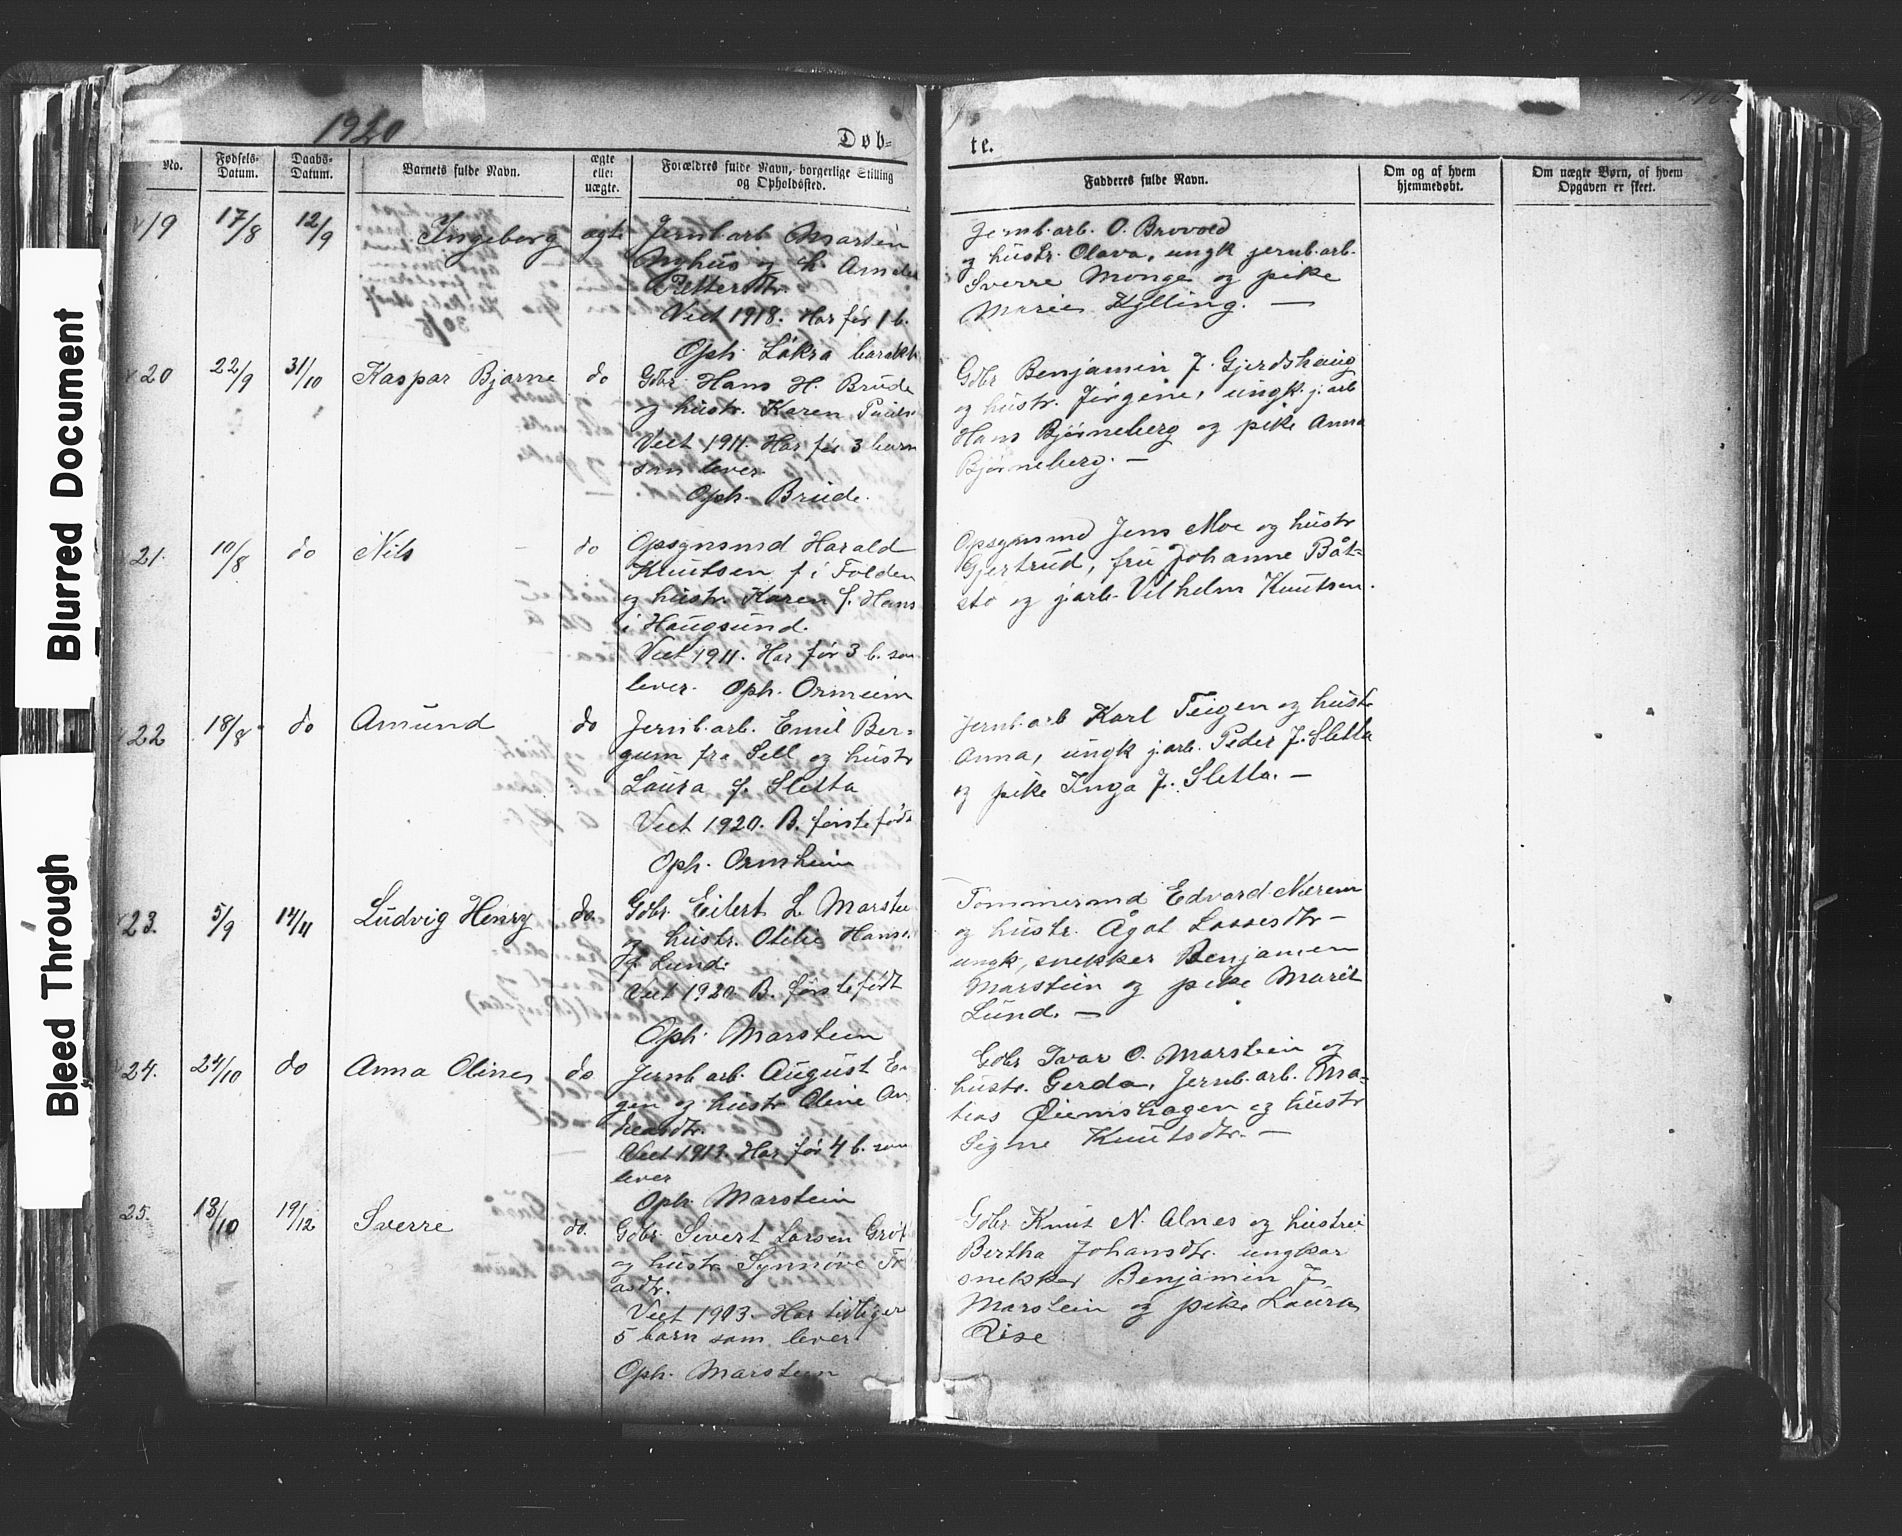 Blurred Document
Bleed Through
1920
Døb-
te.
No.
Fødsels-
Datum.
Daabs-
Datum.
Barnets fulde Navn.
ægte
eller
uægte.
Forældres fulde Navn, borgerlige Stilling
og Opholdssted.
Fadderes fulde Navn.
Om og af hvem
hjemmedøbt.
Om uægte Børn, af hvem
Opgaven er skeet.
19
17/8
12/9
Ingeborg
ægte
Jernb.arb Martin
og h. Amalia
Petterdtr.
Viet 1918. Har før 1 b.
Oph. Låkra barakk
Jernb.arb. O. Brovold
og hustr. Olava, ungk jernb.arb.
Sverre Monge og pike
Marie Kylling. —
20
22/9
31/10
Kaspar Bjarne
do
Gdbr. Hans H. Brude
og hustr. Karen Pauls
Viet 1911. Har før 3 barn
som lever.
Oph. Brude.
Gdbr Benjamin J. Gjerdshaug
og hustr. Jørgine, ungk. j.arb
Hans Bjørneberg og pike Anna
Bjørneberg. —
21.
10/8
do
Nils
do
Opsynsmd Harald
Knutsen f i Folden
og hustr. Karen f. Hans
i Haugsund.
Viet 1911. Har før 3 b. som
lever. Oph. Ormeim
Opsynsmd Jens Moe og hustr
Gjertrud, fru Johanne Båt-
stø og j.arb. Vilhelm Knutsen.
22
18/8
do
Amund
do
Jernb.arb. Emil Ber-
gum fra Sell og hustr
Laura f. Sletta
Viet 1920. B. førstefødt
Oph. Ormheim
Jernb.arb Karl Teigen og hustr
Anna, ungk j.arb. Peder J. Sletta
og pike Inga J. Sletta. —
23.
5/9
14/11
Ludvig Henry
do
Gdbr. Eilert L. Marstei
og hustr. Otilie Hans.
f. Lund.
Viet 1920. B. førstefødt
Oph. Marstein
Tømmermd Edvard Nerem
og hustr. Ågot Lassesdtr —
ungk, snekker Benjamen
Marstein og pike Marit
Lund. —
24.
24/10
do
Anna Oline
do
Jernb arb. August En-
gen og hustr Oline An
dreasdtr.
Viet 1913. Har før 4 b. som
lever
Oph. Marstein
Gdbr Ivar O. Marstein og
hustr. Gerda, Jernb.arb. Ma-
tias Øiemshagen og hustr
Signe Knutsdtr. —
25.
13/10
19/12
Sverre
do.
Gdbr. Sivert Larsen
og hustr. Synnøve
asdtr.
Viet 1903. Har tidligere
5 barn som lever
Oph. Marstein
Gdbr Knut N. Alnes og hustru
Bertha Johansdtr. ungkar
snekker Benjamin J.
Marstein og pike Laura
Rise